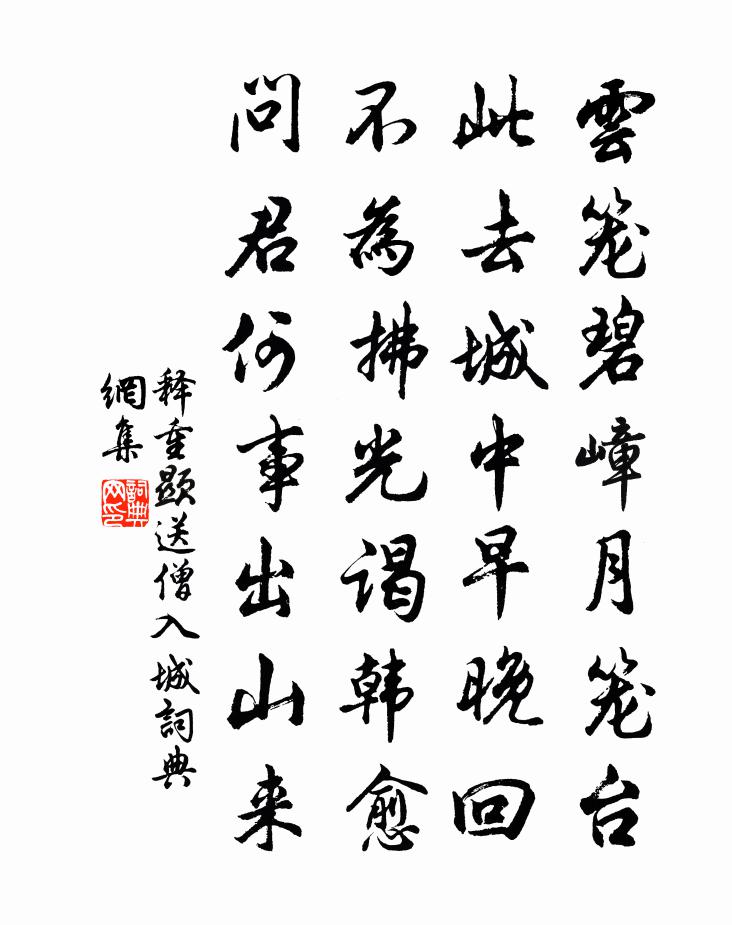 雲笼碧嶂月笼台
此去城中早晚回
不為拂光谒韩愈
問君何事出山来
释重顯送僧入城詞典
網集
詞典网印